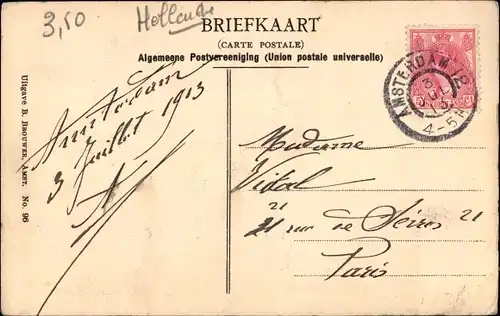 3,50
Hollande
BRIEFKAART
(CARTE POSTALE)
Algemeene Postvereeniging (Union postale universelle)
AMSTERDAM
4-5N
Uitgave B. Brouwer, Amst. No. 96
Amsterdam
3 Juillet 1913
Madame
Vidal
21 21
21 rue de
Paris